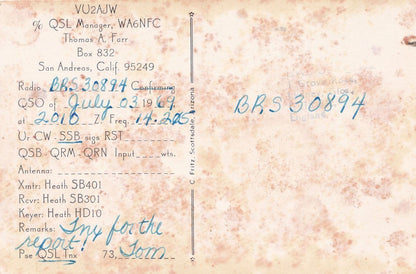 VU2AJW
c/o QSL Manager, WA6NFC
Thomas A. Farr
Box 832
San Andreas, Calif. 95249
Radio BRS 30894 Confirming
QSO of July 03 1969
at 2010 Z Freq. 14.205
U. CW SSB sigs RST
QSB - QRM - QRN Input wts.
Antenna:
Xmtr: Heath SB401
Rcvr: Heath SB301
Keyer: Heath HD10
Remarks: Tnx for the
report!
Pse QSL Tnx 73, Tom
C. Fritz, Scottsdale, Arizona
BRS 30894